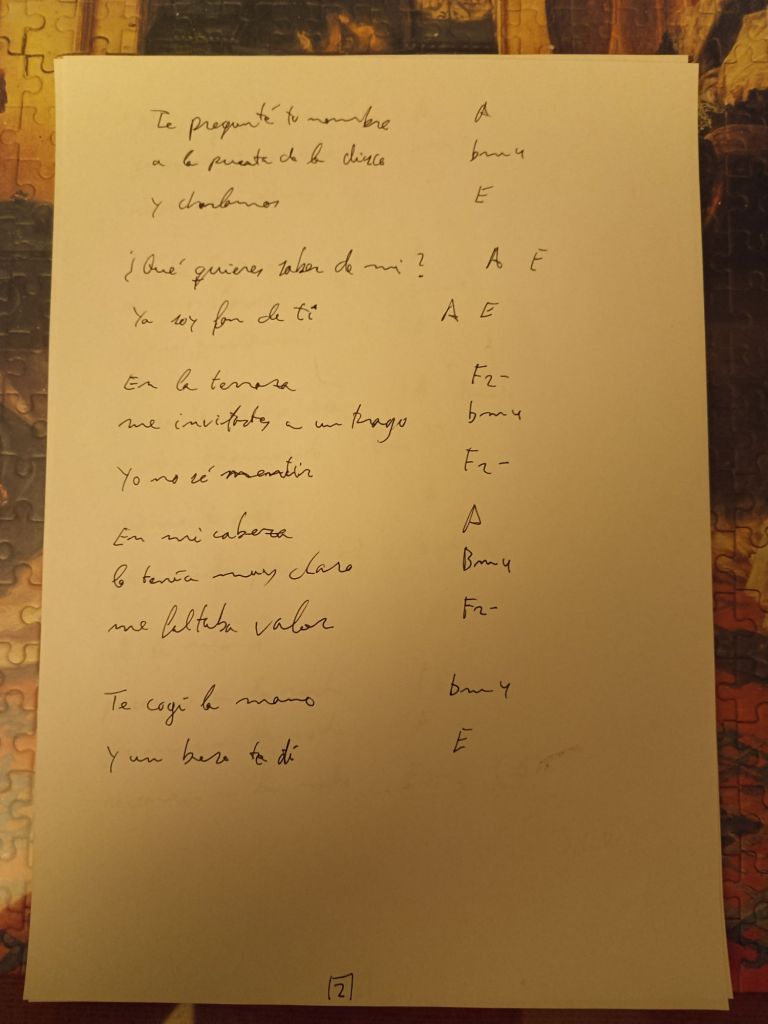 Te pregunté tu nombre A
a la puerta de la disco bm4
y charlamos E
¿Qué quieres saber de mi? A E
Ya soy fan de ti A E
En la terraza F2-
me invitastes a un trago bm4
Yo no sé mentir F2-
En mi cabeza A
lo tenía muy claro Bm4
me faltaba valor F2-
Te cogí la mano bm4
Y un beso te di E
2